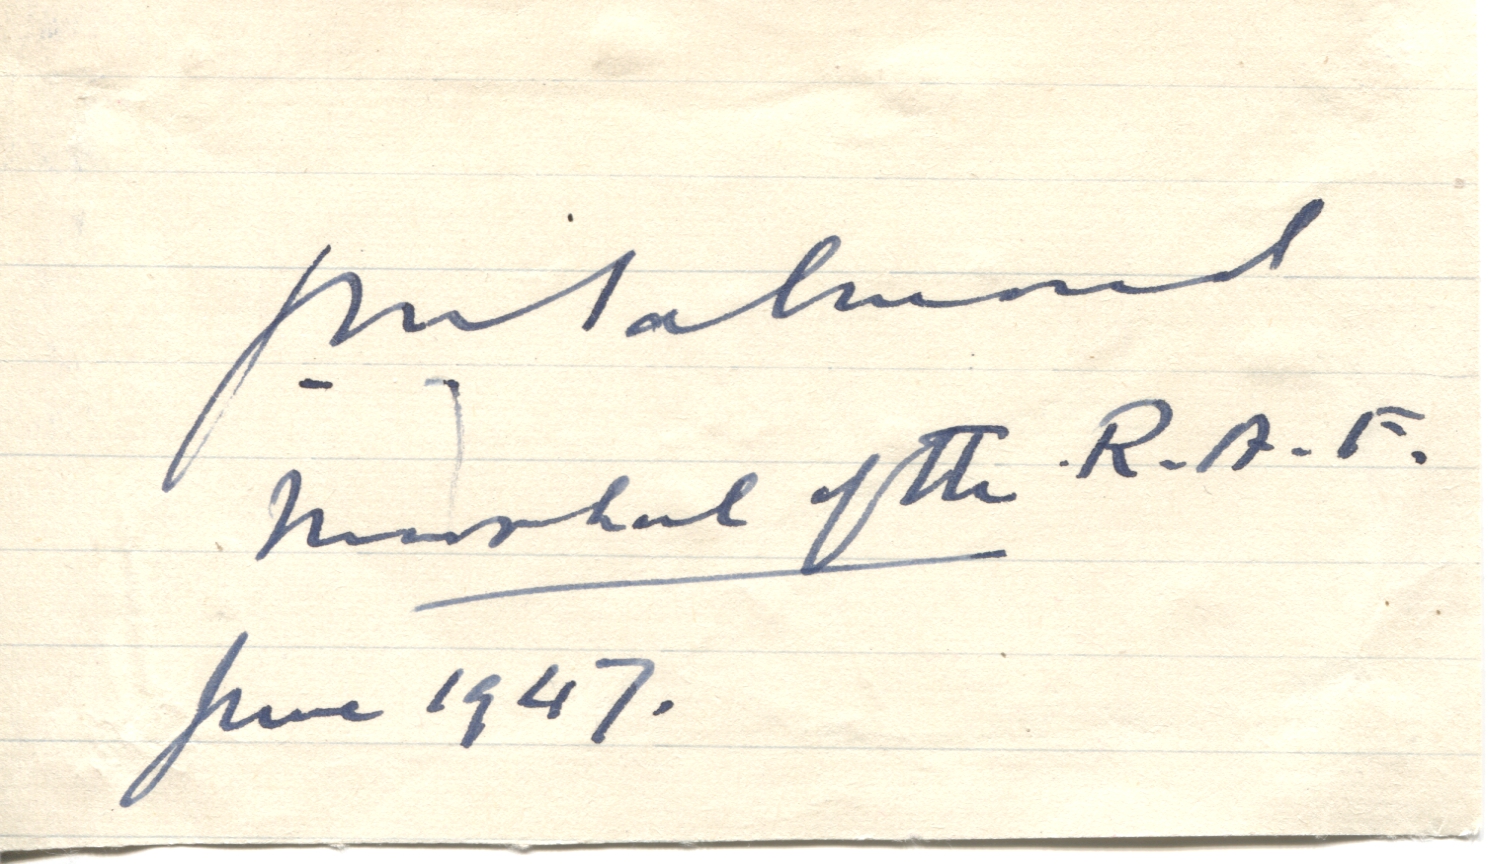 JM Salmond
Marshal of the R.A.F.
June 1947.